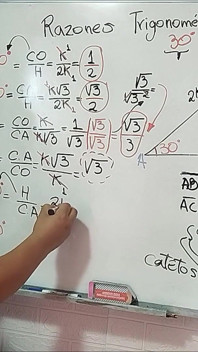 Razones Trigonomé
30°
° = CO/H = K/2K = 1/2
° = CA/H = K√3/2K = √3/2
√3/√3² =
2
= CO/CA = K/K√3 = 1/√3 √3/√3 = √3/3
A 30°
= CA/CO = K√3/K = √3
AB
= H/CA = 2K
AC
Catetos